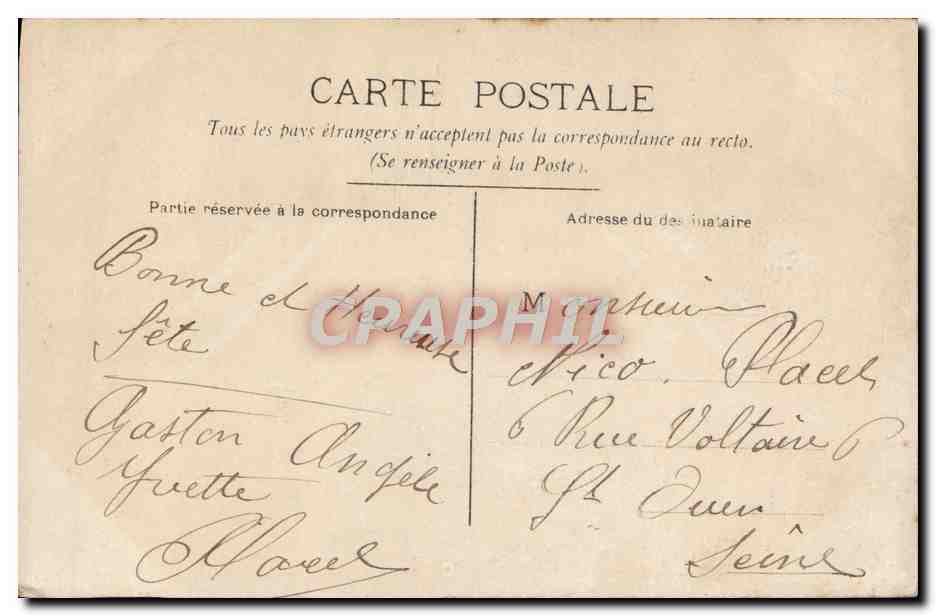 CARTE POSTALE
Tous les pays étrangers n'acceptent pas la correspondance au recto.
(Se renseigner à la Poste).
Partie réservée à la correspondance
Bonne et Heureuse
fête
Gaston Angèle
Yvette
CPAPHIL
Adresse du des inataire
Monsieur
Nico.
6 Rue Voltaire 6
St Ouen
Seine